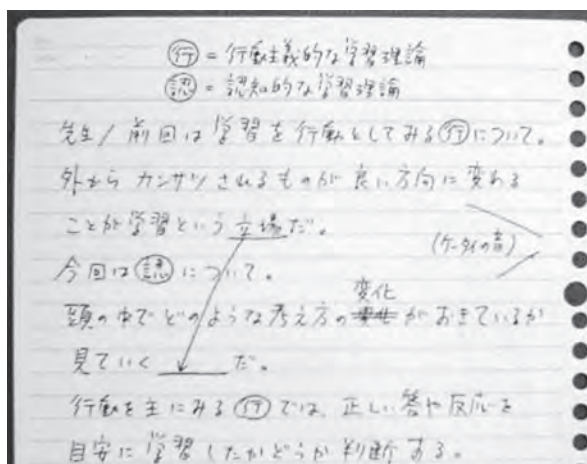 ㊓=行動主義的な学習理論
㊩=認知的な学習理論
先生/前回は学習を行動としてみる㊓について。
外から カンサツ されるものが 良い方向に変わる
ことが学習という立場だ。
(ケータイの音)
今回は㊩について。
変化
頭の中でどのような考え方の がおきているか
見ていく ______ だ。
行動を主にみる㊓では、正しい答や反応を
目安に学習したかどうか判断する。